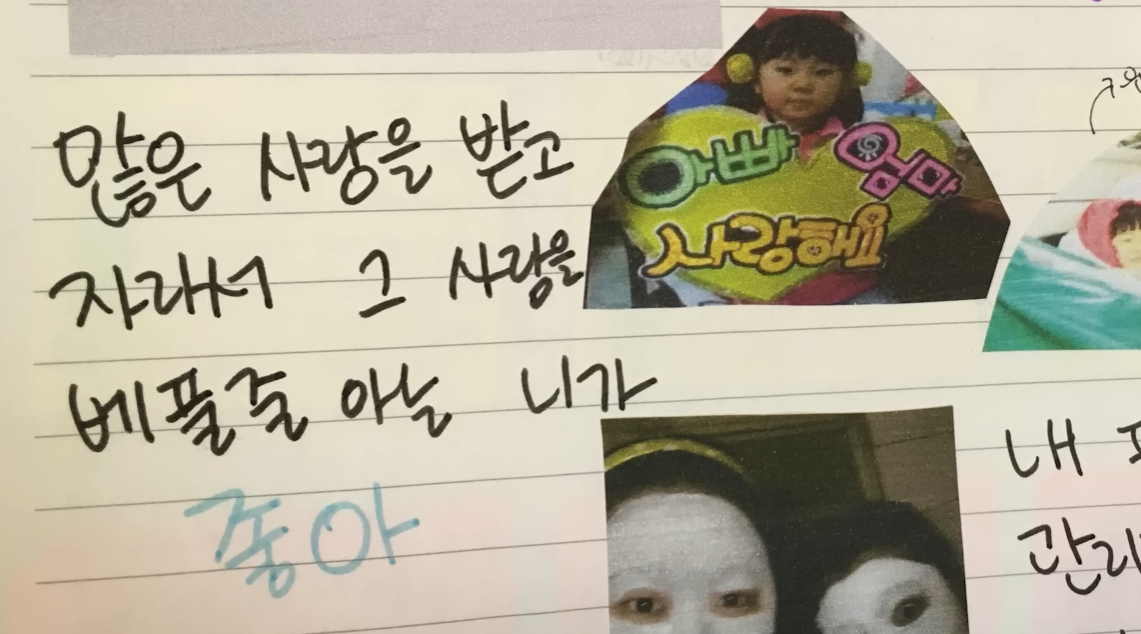 많은 사랑을 받고
자라서 그 사랑을
베풀줄 아는 니가
좋아
아빠 엄마
사랑해요
내
관리